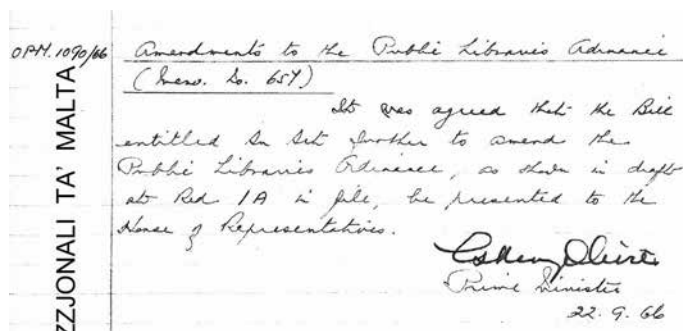 OPM. 1090/66
Amendments to the Public Libraries Ordinance
(Memo. No. 657)
It was agreed that the Bill
entitled An Act further to amend the
Public Libraries Ordinance, as shown in draft
at Red 1A in file, be presented to the
House of Representatives.
Prime Minister
22. 9. 66
ZZJONALI TA' MALTA